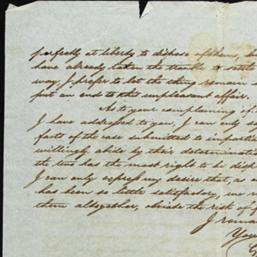 perfectly at liberty to dispose of them, but
have already taken the trouble to
way, I prefer to let the thing remain
put an end to this unpleasant affair.
As to your complaining of
I have addressed to you, I can only
facts of the case submitted to impartial
willingly abide by their determination
the two has the most right to be
I can only express my desire that, as
has been so little satisfactory, we
them altogether, obviate the risk of
I remain
You